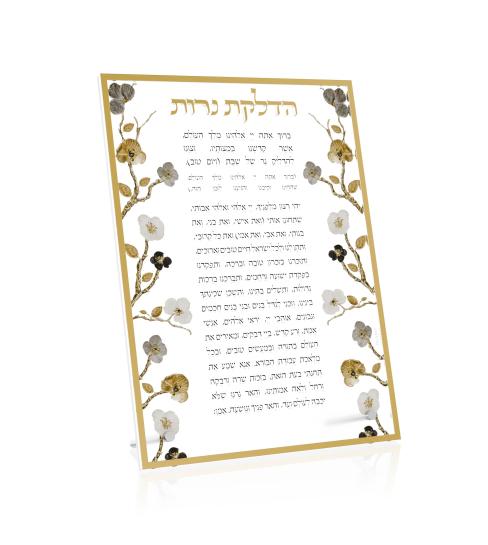 הדלקת נרות
ברוך אתה יי אלהינו מלך העולם,
אשר קדשנו במצותיו, וצונו
להדליק נר של שבת (ויום טוב).
יהי רצון מלפניך, יי אלהי ואלהי אבותי,
שתחונן אותי (ואת אישי, ואת בני, ואת
בנותי, ואת אבי, ואת אמי) ואת כל קרובי,
ותתן לנו ולכל ישראל חיים טובים וארוכים,
ותזכרנו בזכרון טובה וברכה, ותפקדנו
בפקדת ישועה ורחמים, ותברכנו ברכות
גדולות, ותשלים בתינו, ותשכן שכינתך
בינינו. וזכני לגדל בנים ובני בנים חכמים
ונבונים, אוהבי יי יראי אלהים, אנשי
אמת, זרע קדש, ביי דבקים, ומאירים את
העולם בתורה ובמעשים טובים, ובכל
מלאכת עבודת הבורא. אנא שמע את
תחנתי בעת הזאת, בזכות שרה ורבקה
ורחל ולאה אמותינו, והאר נרנו שלא
יכבה לעולם ועד, והאר פניך ונושעה. אמן: